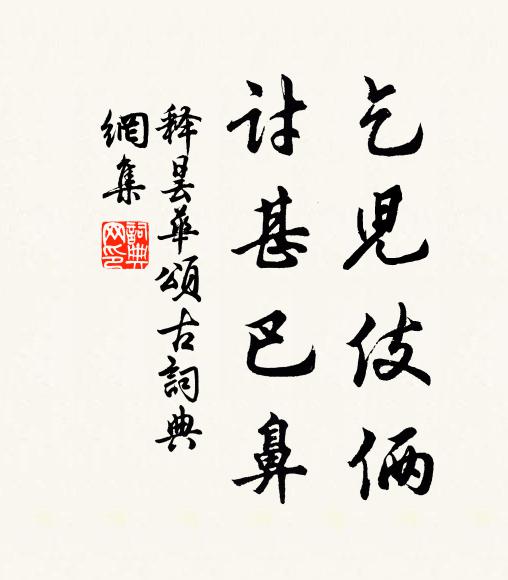 乞兒伎倆
討甚巴鼻
释曇華頌古詞典
網集
詞典
网印